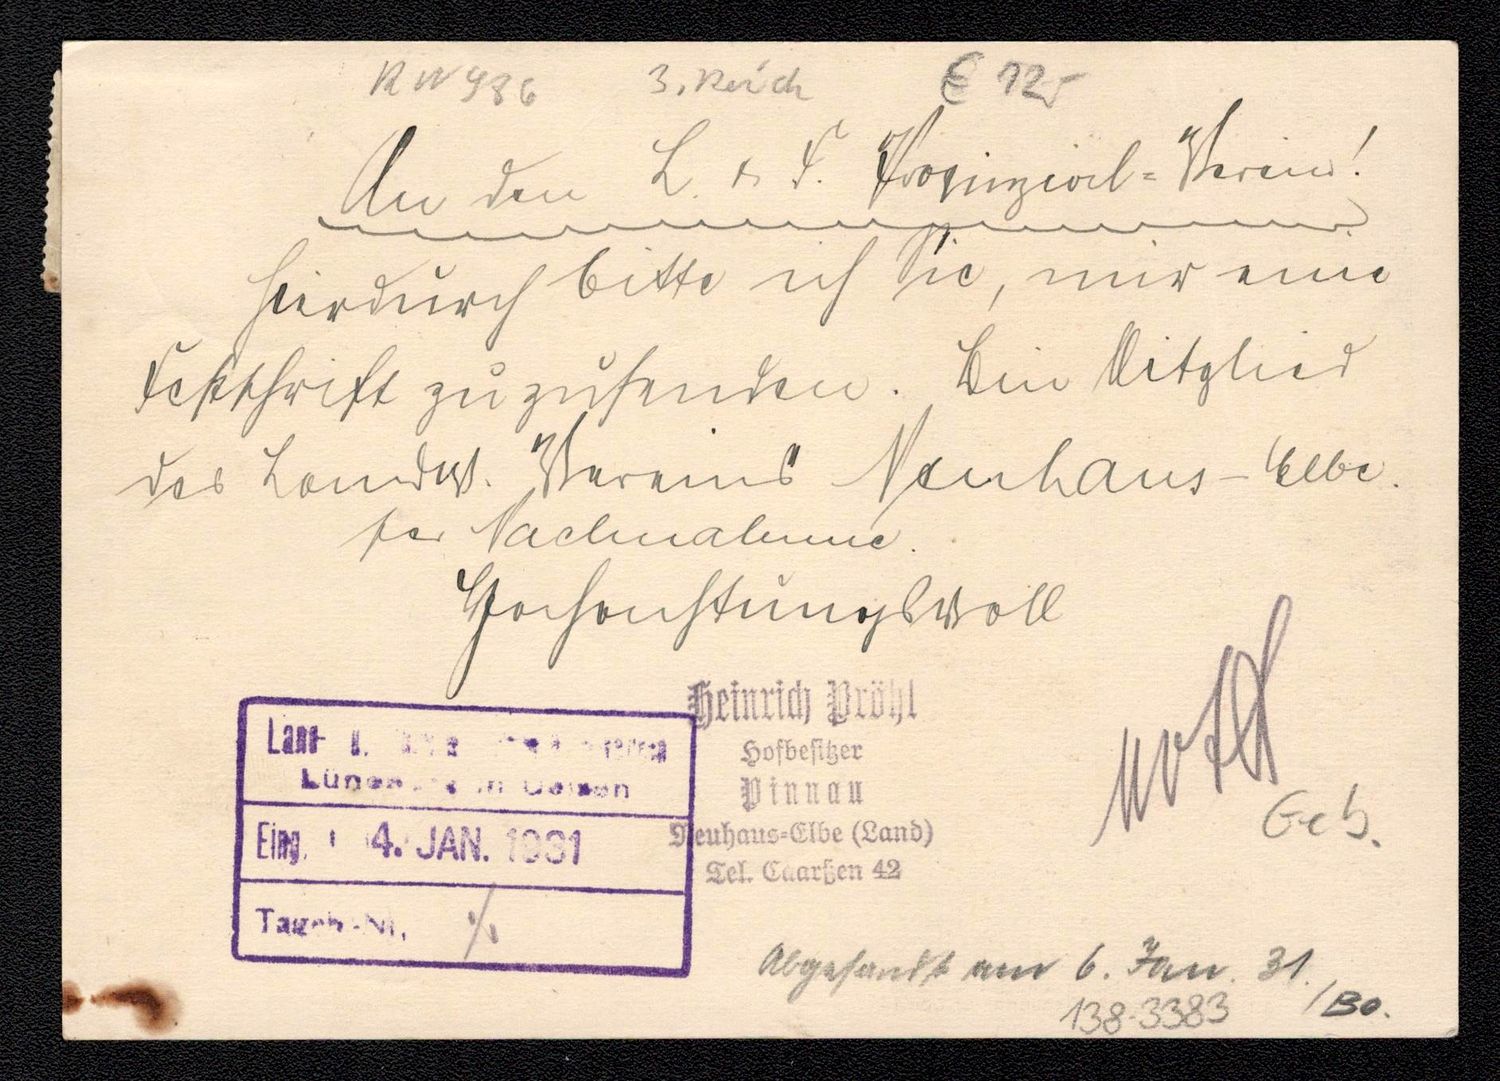 3. Reich € 12,-
An den L. & F. Provinzial-Verein!
Hierdurch bitte ich Sie, mir eine
Festschrift zuzusenden. Bin Mitglied
des Landw. Vereins Neuhaus-Elbe.
per Nachnahme.
Hochachtungsvoll
Heinrich Pröhl
Hofbesitzer
Pinnau
Neuhaus-Elbe (Land)
Tel. Caarßen 42
Eing. 4. JAN. 1931
Tageb.-Nr.
Geb.
Abgesandt am 6. Jan. 31.
138-3383 /Bo.